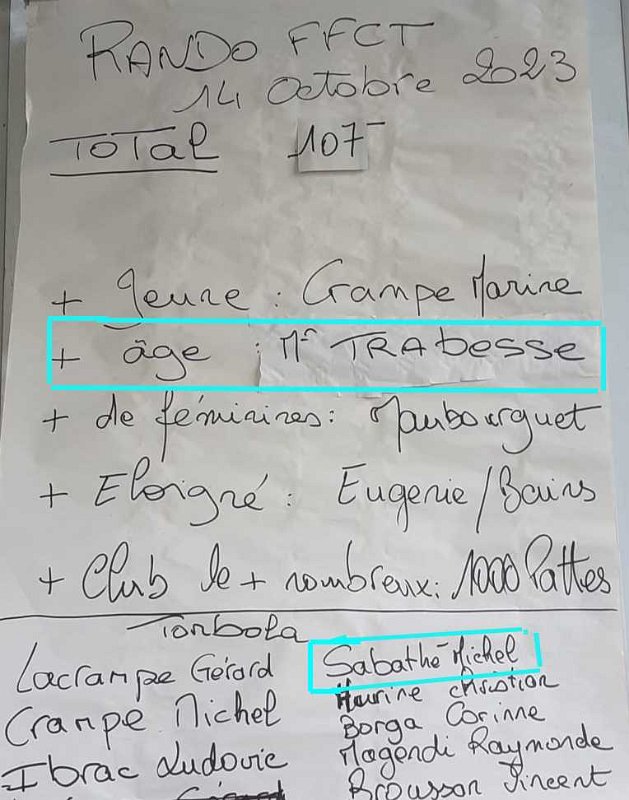 RANDO FFCT
14 Octobre 2023
TOTAL 107
+ Jeune : Crampe Marine
+ âge : Mr TRAbesse
+ de féminines : Maubourguet
+ Eloigné : Eugenie/Bains
+ Club le + nombreux : 1000 Pattes
Tombola
Lacrampe Gérard
Crampe Michel
Ibrac Ludovic
Sabathé Michel
Christian
Borga Corinne
Magendi Raymonde
Brousson Vincent